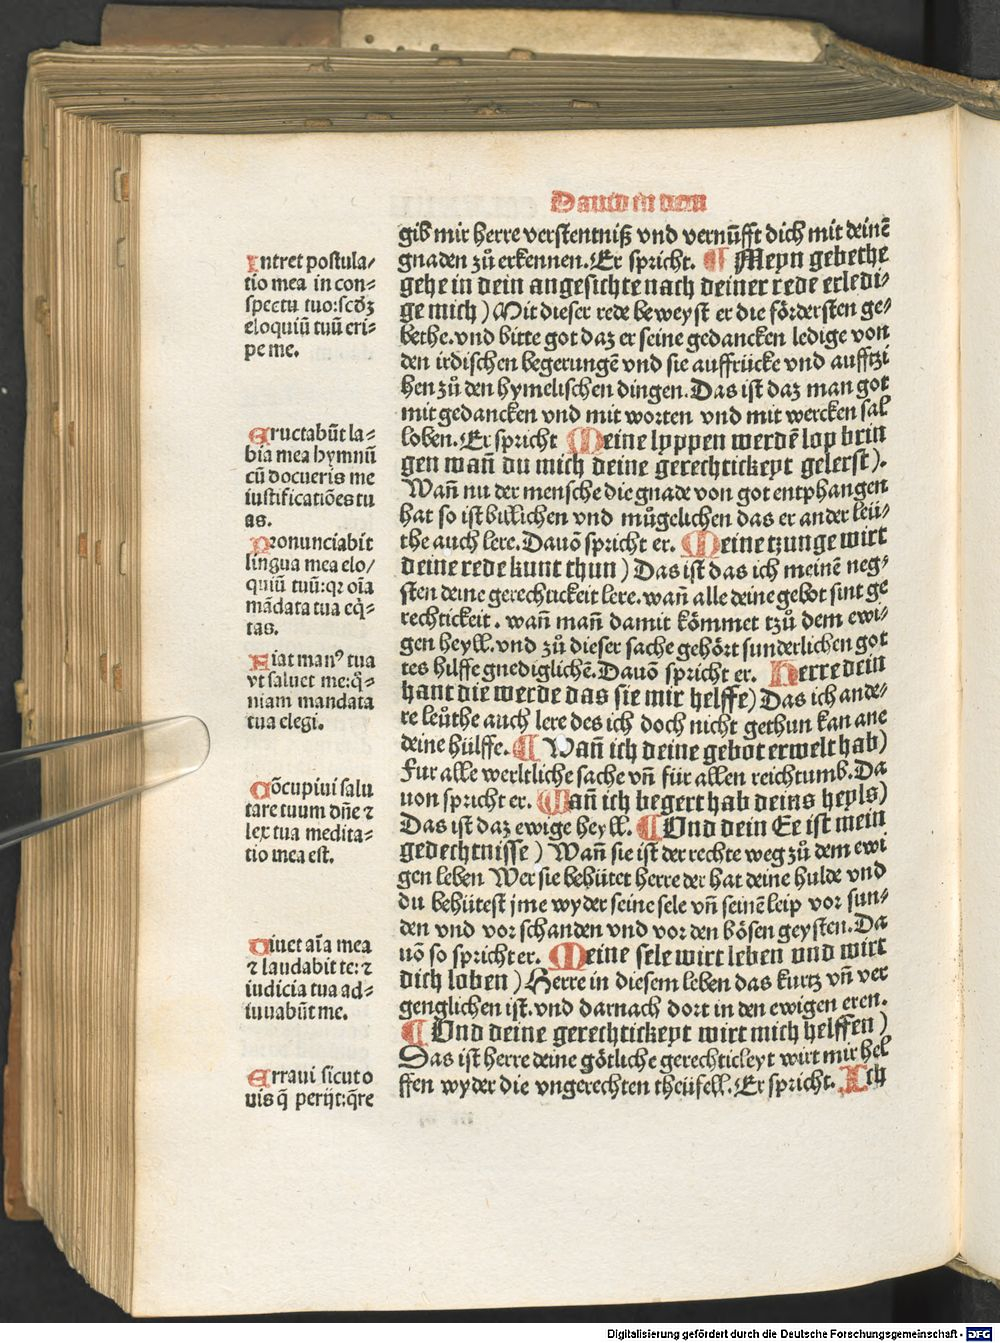 Dauid in dem
gib mir herre verstentniß vnd vernũfft dich mit deinē
gnaden zů erkennen. Er spricht. ¶ Meyn gebethe
gehe in dein angesichte nach deiner rede erledi-
ge mich) Mit dieser rede beweyst er die fördersten ge-
bethe. vnd bitte got daz er seine gedancken ledige von
den irdischen begerungē vnd sie auffrücke vnd aufftzi
hen zů den hymelischen dingen. Das ist daz man got
mit gedancken vnd mit worten vnd mit wercken sal
loben. Er spricht Meine lyppen werdē lop brin
gen wañ du mich deine gerechtickeyt gelerst).
Wañ nu der mensche die gnade von got entphangen
hat so ist billichen vnd můgelichen das er ander leü-
the auch lere. Dauō spricht er. Meine tzunge wirt
deine rede kunt thun) Das ist das ich meinē neg-
sten deine gerechtickeit lere. wañ alle deine gebot sint ge
rechtickeit. wañ mañ damit kömmet tzů dem ewi-
gen heyll. vnd zů dieser sache gehört sunderlichen got
tes hilffe gnediglichē. Dauō spricht er. Herre dein
hant die werde das sie mir helffe) Das ich ande-
re leůthe auch lere des ich doch nicht gethun kan ane
deine hülffe. ¶ Wañ ich deine gebot erwelt hab)
Fur alle werltliche sache vñ für allen reichtumb. Da
uon spricht er. Wañ ich begert hab deins heyls)
Das ist daz ewige heyll. ¶ Vnd dein Ee ist mein
gedechtnisse) Wañ sie ist der rechte weg zů dem ewi
gen leben Wer sie behütet herre der hat deine hulde vnd
du behütest jme wyder seine sele vñ seinē leip vor sun-
den vnd vor schanden vnd vor den bösen geysten. Da
uō so spricht er. Meine sele wirt leben vnd wirt
dich loben) Herre in diesem leben das kurtz vñ ver
genglichen ist. vnd darnach dort in den ewigen eren.
¶ Vnd deine gerechtickeyt wirt mich helffen)
Das ist herre deine götliche gerechticleyt wirt mir hel
ffen wyder die vngerechten theüfell. Er spricht. Ich
Intret postula-
tio mea in con-
spectu tuo: scd̄z
eloquiū tuū eri-
pe me.
Eructabūt la-
bia mea hymnū
cū docueris me
iustificatiōes tu
as.
Pronunciabit
lingua mea elo-
quiū tuū: qꝛ oīa
mādata tua eq̄-
tas.
Fiat manꝰ tua
vt saluet me: q̄-
niam mandata
tua elegi.
Cōcupiui salu
tare tuum dn̄e ⁊
lex tua medita-
tio mea est.
Viuet aīa mea
⁊ laudabit te: ⁊
iudicia tua ad-
iuuabūt me.
Erraui sicut o
uis q̄ perijt: q̄re
Digitalisierung gefördert durch die Deutsche Forschungsgemeinschaft - DFG